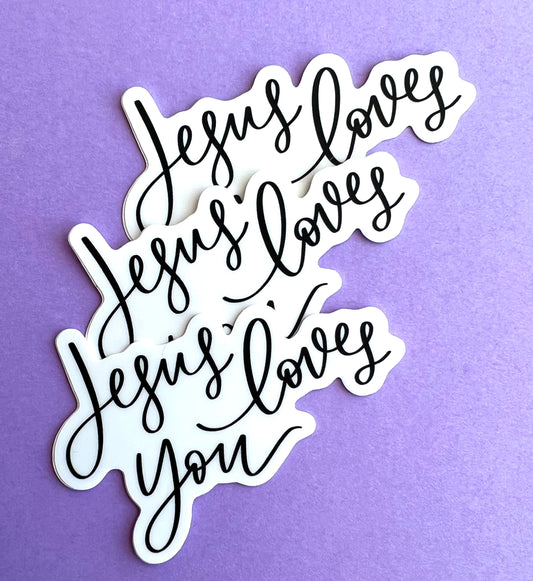 Jesus loves
Jesus loves
Jesus loves
you